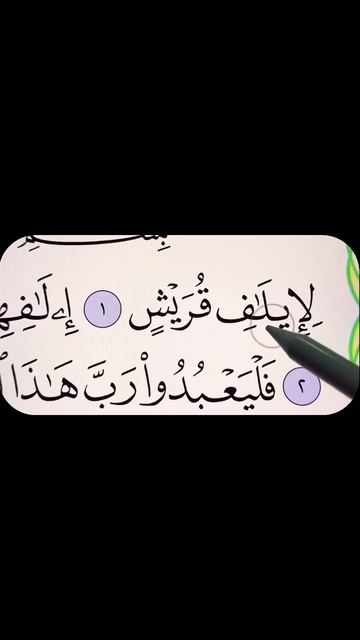 لِإِيلَٰفِ قُرَيْشٍ ١ إِۦلَٰفِهِ
٢ فَلْيَعْبُدُوا۟ رَبَّ هَٰذَا